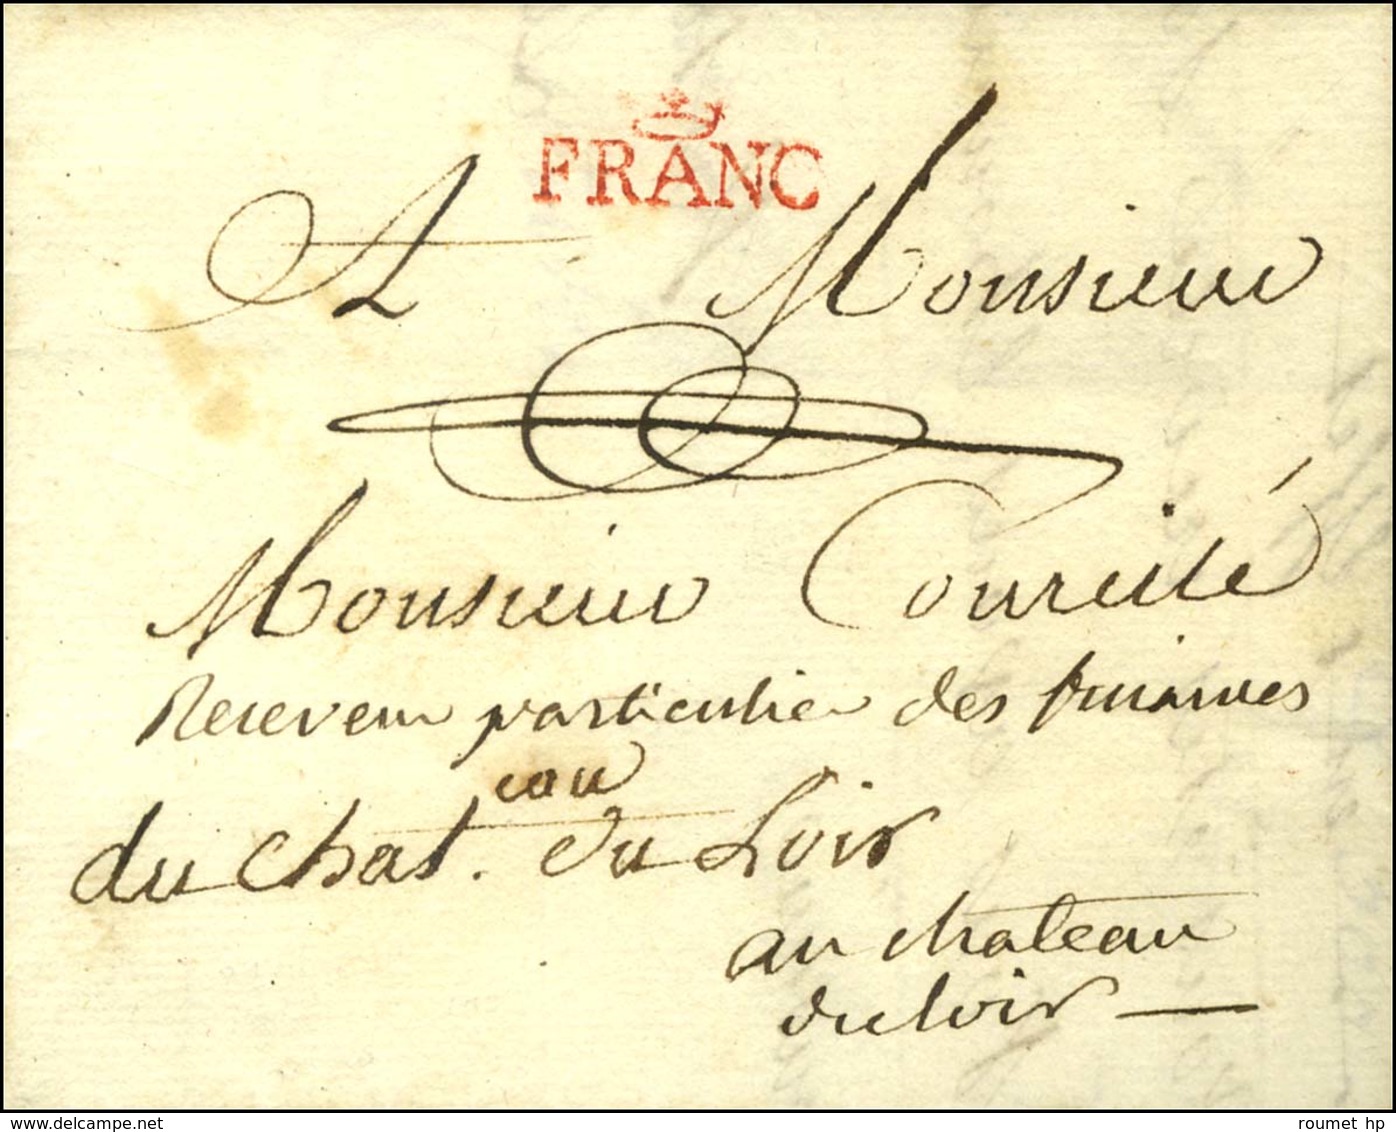 FRANC
A Monsieur
Monsieur Courcité
Receveur particulier des finances
eau
du Chat. du Loir
au chateau
du loir
delcampe.net
roumet hp